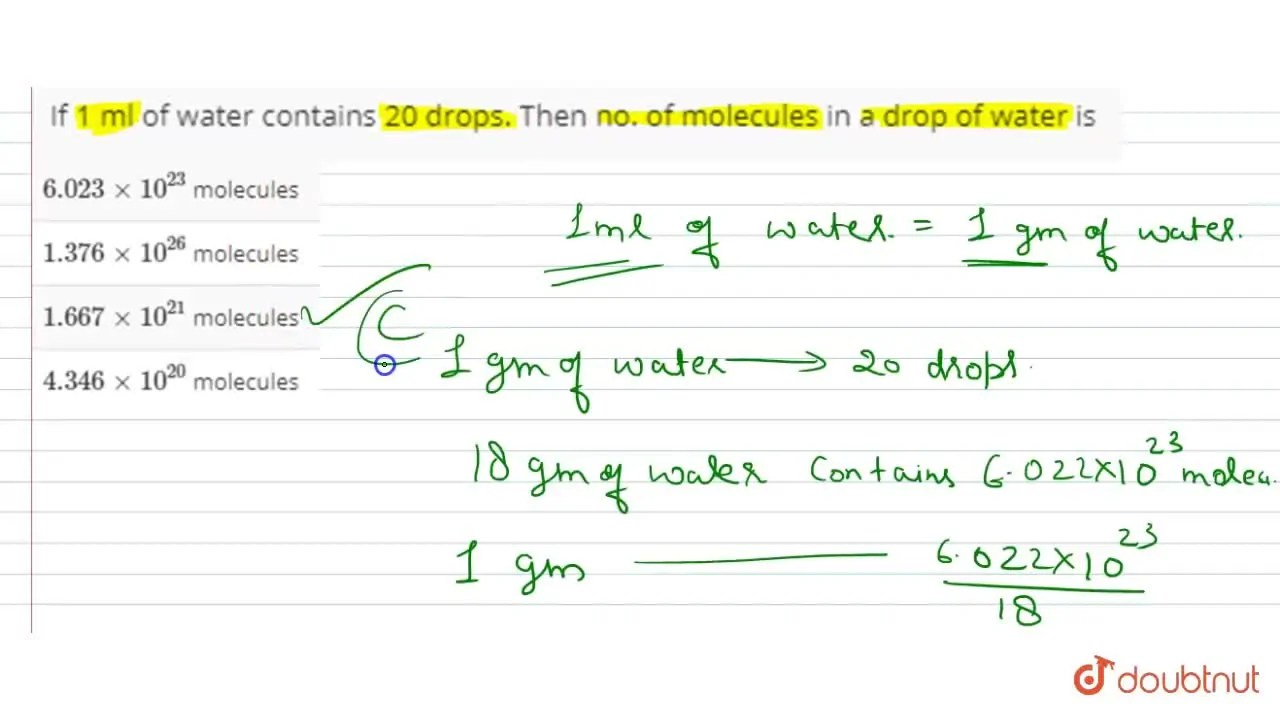 If 1 ml of water contains 20 drops. Then no. of molecules in a drop of water is
6.023 × 10²³ molecules
1.376 × 10²⁶ molecules
1.667 × 10²¹ molecules
4.346 × 10²⁰ molecules
1ml of water. = 1 gm of water.
C
1 gm of water → 20 drops.
18 gm of water contains 6.022×10²³ molecu.
1 gm — 6.022×10²³
18
doubtnut